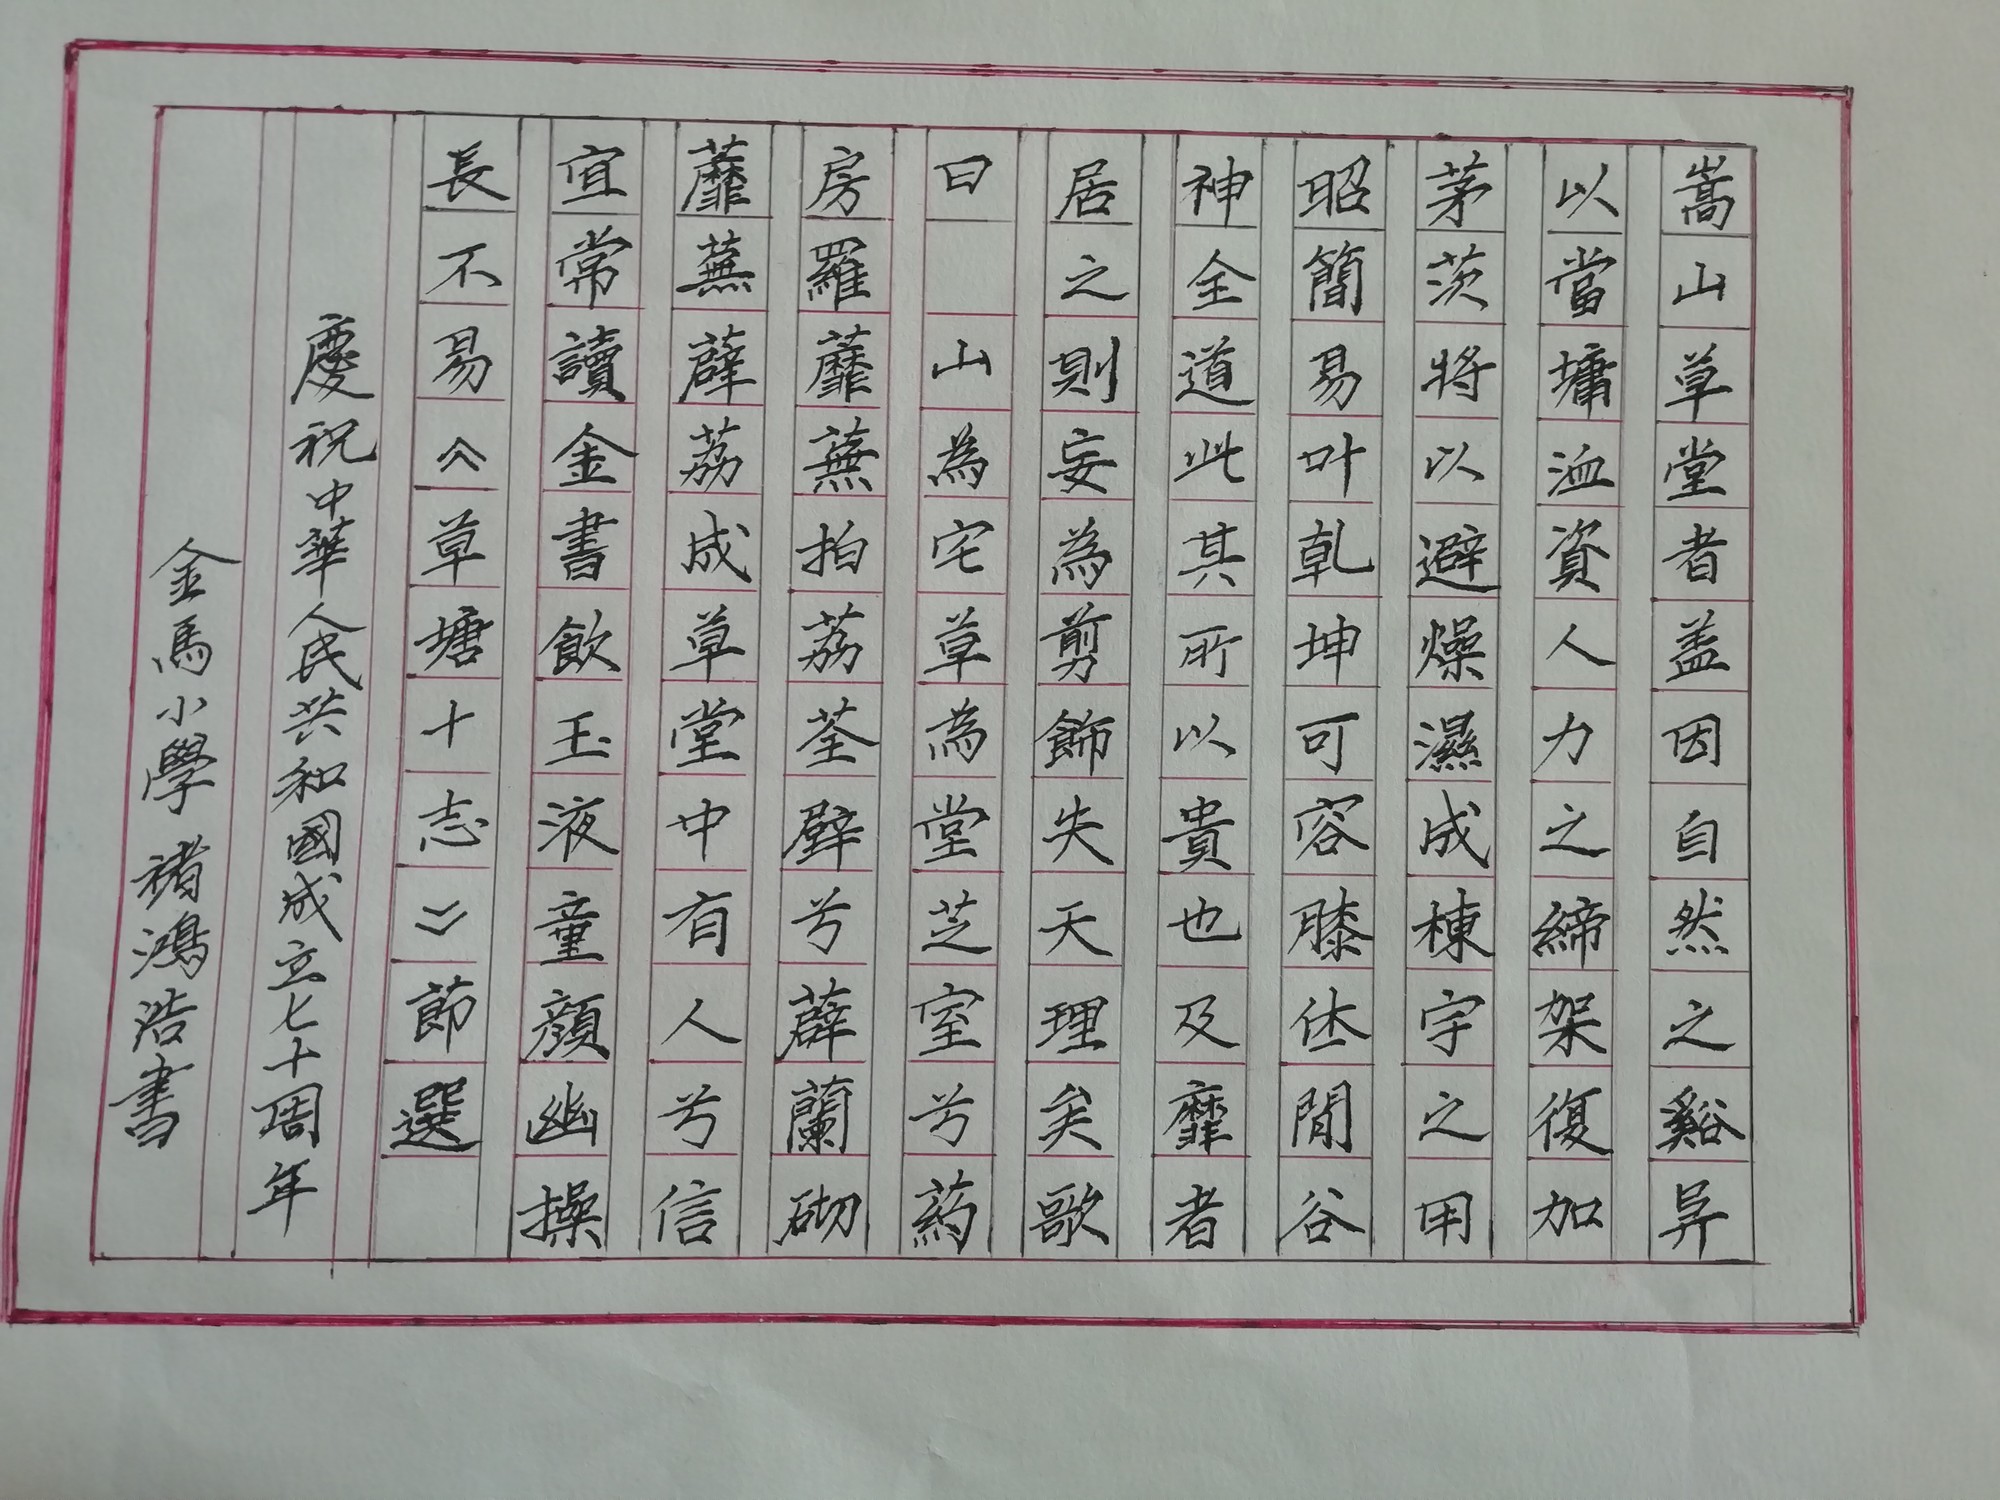 嵩山草堂者盖因自然之谿异
以當墉洫資人力之締架復加
茅茨將以避燥濕成棟宇之用
昭簡易叶乹坤可容膝休閒谷
神全道此其所以貴也及靡者
居之則妄為剪飾失天理矣歌
曰 山為宅草為堂芝室兮药
房羅蘼蕪拍荔荃壁兮薜蘭砌
蘼蕪薜荔成草堂中有人兮信
宜常讀金書飲玉液童顏幽操
長不易《草塘十志》節選
慶祝中華人民共和國成立七十周年
金馬小學 褚鴻浩書